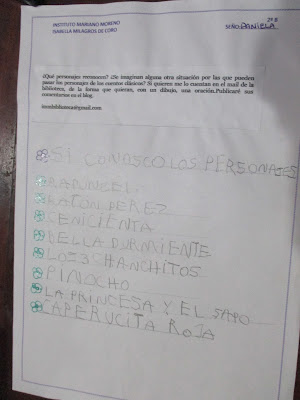 INSTITUTO MARIANO MORENO
ISABELLA MILAGROS DE LORO
2º B
SEÑO: DANIELA
¿Qué personajes reconocen? ¿Se imaginan alguna otra situación por las que pueden
pasar los personajes de los cuentos clásicos? Si quieren me lo cuentan en el mail de la
biblioteca, de la forma que quieran, con un dibujo, una oración.Publicaré sus
comentarios en el blog.
SI CONOSCO LOS PERSONAJES
RAPUNCEL:
RATON PEREZ
CENICIENTA
BELLA DURMIENTE
LOS 3 CHANCHITOS
PINOCHO
LA PRINCESA Y EL SAPO
CAPERUCITA ROJA